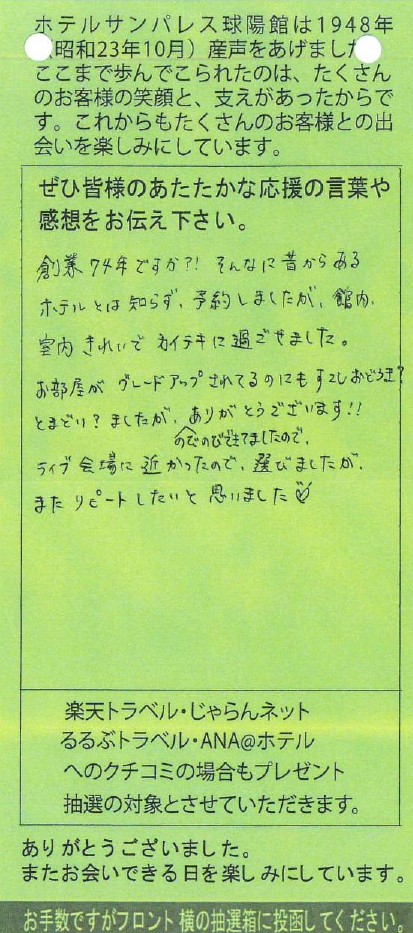 ホテルサンパレス球陽館は1948年
(昭和23年10月)産声をあげました
ここまで歩んでこられたのは、たくさん
のお客様の笑顔と、支えがあったからで
す。これからもたくさんのお客様との出
会いを楽しみにしています。
ぜひ皆様のあたたかな応援の言葉や
感想をお伝え下さい。
創業74年ですか?! そんなに昔からある
ホテルとは知らず、予約しましたが、館内、
室内きれいでカイテキに過ごせました。
お部屋がグレードアップされてるのにもすこしおどろき?
とまどい?ましたが、ありがとうございます!!
のびのびできてましたので、
ライブ会場に近かったので、選びましたが、
またリピートしたいと思いました♡
楽天トラベル・じゃらんネット
るるぶトラベル・ANA@ホテル
へのクチコミの場合もプレゼント
抽選の対象とさせていただきます。
ありがとうございました。
またお会いできる日を楽しみにしています。
お手数ですがフロント横の抽選箱に投函してください。